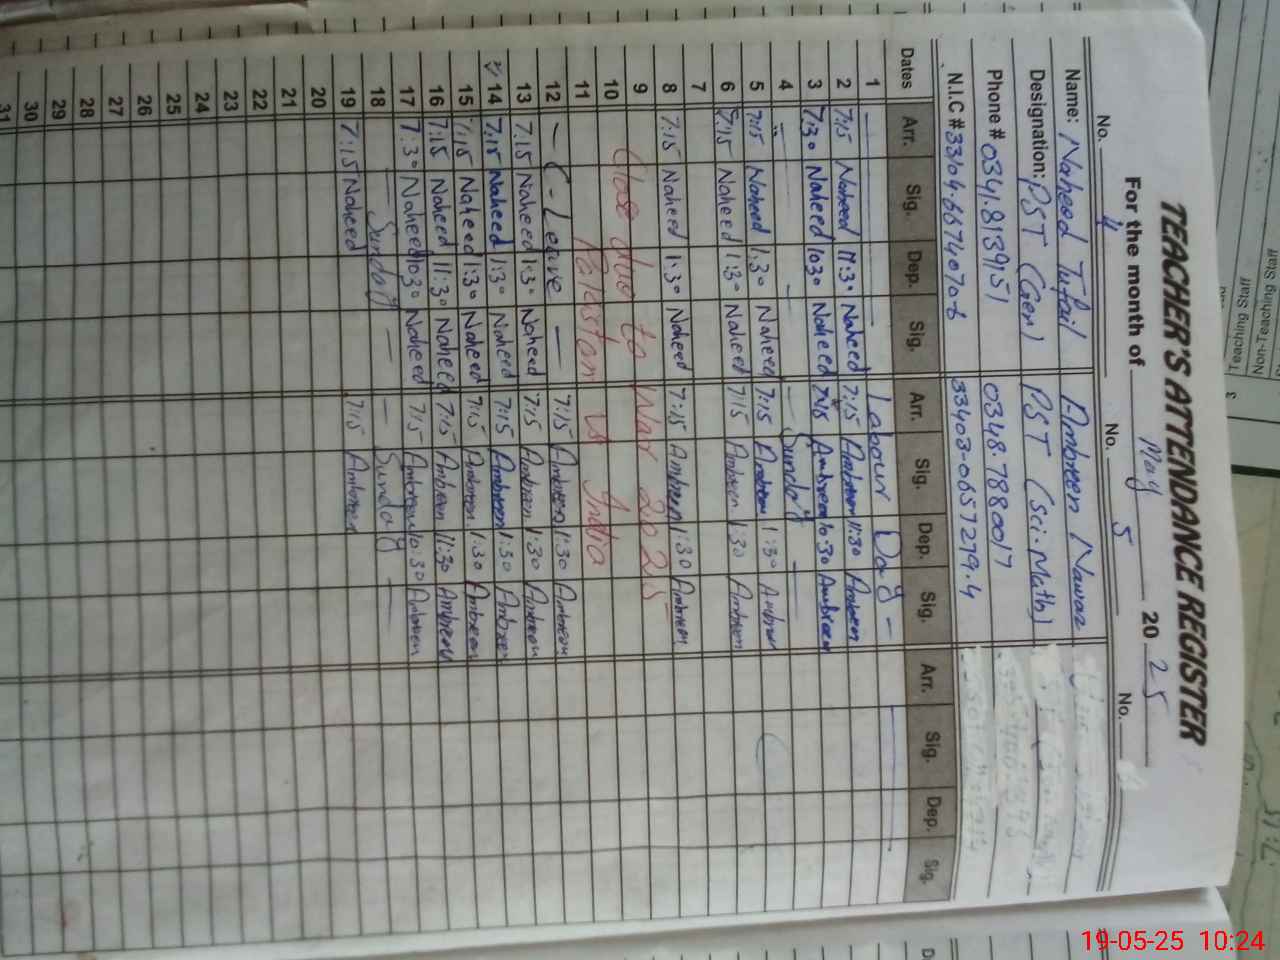 TEACHER'S ATTENDANCE REGISTER
For the month of May 2025
No. 4 No. 5 No.
Name: Naheed Tufail Ambreen Nawaz
Designation: PST (Gen) PST (Sci. Math)
Phone # 0341.8139151 0348.7880017
N.I.C # 33104.6674070.6 33403-0657279.4
Dates Arr. Sig. Dep. Sig. Arr. Sig. Dep. Sig. Arr. Sig. Dep. Sig.
1 — Labour Day —
2 7:15 Naheed 11:30 Naheed 7:15 Ambreen 11:30 Ambreen
3 7:30 Naheed 10:30 Naheed 7:15 Ambreen 10:30 Ambreen
4 — Sunday —
5 7:15 Naheed 1:30 Naheed 7:15 Ambreen 1:30 Ambreen
6 7:15 Naheed 1:30 Naheed 7:15 Ambreen 1:30 Ambreen
7
8 7:15 Naheed 1:30 Naheed 7:15 Ambreen 1:30 Ambreen
9 Close due to War 2025
10 Pakistan vs India
11
12 — C-Leave — 7:15 Ambreen 1:30 Ambreen
13 7:15 Naheed 1:30 Naheed 7:15 Ambreen 1:30 Ambreen
14 7:15 Naheed 1:30 Naheed 7:15 Ambreen 1:30 Ambreen
15 7:15 Naheed 1:30 Naheed 7:15 Ambreen 1:30 Ambreen
16 7:15 Naheed 11:30 Naheed 7:15 Ambreen 11:30 Ambreen
17 7:30 Naheed 10:30 Naheed 7:15 Ambreen 10:30 Ambreen
18 — Sunday — — Sunday —
19 7:15 Naheed 7:15 Ambreen
20
21
22
23
24
25
26
27
28
29
30
31
Teaching Staff
Non-Teaching Staff
19-05-25 10:24